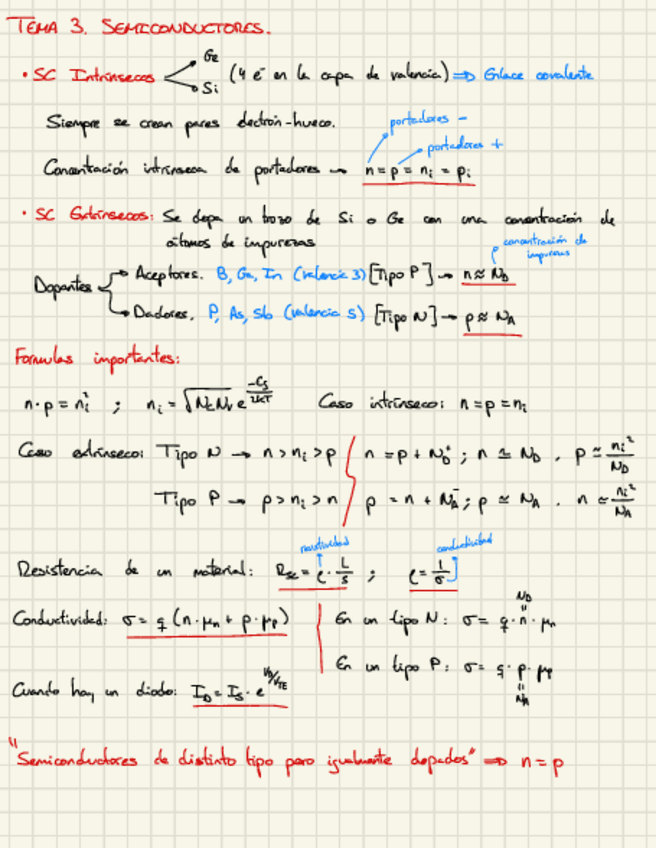 TEMA 3. SEMICONDUCTORES.
• SC Intrínsecos Ge Si (4 e⁻ en la capa de valencia) ⇒ Enlace covalente
Siempre se crean pares electrón-hueco.
portadores −
portadores +
Concentración intrínseca de portadores → n = p = ni = pi
• SC Extrínsecos: Se dopa un trozo de Si o Ge con una concentración de
átomos de impurezas
concentración de
impurezas
Dopantes
Aceptores. B, Ga, In (valencia 3) [Tipo P] → n ≈ ND
Dadores. P, As, Sb (valencia 5) [Tipo N] → p ≈ NA
Formulas importantes:
n·p = ni² ; ni = √NcNv e^(-EG/2KT) Caso intrínseco: n = p = ni
Caso extrínseco: Tipo N → n > ni > p n = p + ND⁺ ; n ≃ ND . p ≃ ni²/ND
Tipo P → p > ni > n p = n + NA⁻ ; p ≃ NA . n ≃ ni²/NA
resistividad conductividad
Resistencia de un material: Rsc = ρ · L/S ; ρ = 1/σ
Conductividad: σ = q (n·μn + p·μp) En un tipo N: σ = q·n·μn
ND
En un tipo P: σ = q·p·μp
NA
Cuando hay un diodo: ID = IS · e^(VD/VTE)
"Semiconductores de distinto tipo pero igualmente dopados" ⇒ n = p